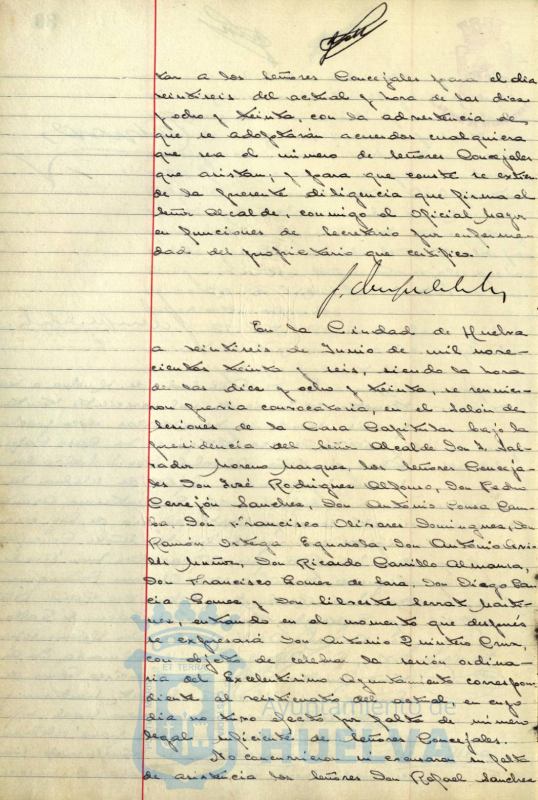 tar a los Señores Concejales para el dia
veintiseis del actual y hora de las diez
y ocho y treinta, con la advertencia de
que se adoptarán acuerdos cualquiera
que sea el número de Señores Concejales
que asistan; y para que conste se extien-
de la presente diligencia que firma el
Señor Alcalde, conmigo el Oficial Mayor
en funciones de Secretario por enferme-
dad del propietario que certifico.
En la Ciudad de Huelva
a veintiseis de Junio de mil nove-
cientos treinta y seis, siendo la hora
de las diez y ocho y treinta, se reunie-
ron previa convocatoria, en el Salón de
Sesiones de la Casa Capitular bajo la
presidencia del Señor Alcalde Don Sal-
vador Moreno Marquez, los Señores Conceja-
les Don José Rodriguez Alfonso, Don Pedro
Cerrejón Sanchez, Don Antonio
Don Francisco Olivares Dominguez, Don
Ramón Ortega Don Antonio
Muñoz, Don Ricardo Carrillo Almansa,
Don Francisco Gomez de Lara, Don Diego Gar-
cia Gomez y Don Silvestre Serrat Marti-
nez, entrando en el momento que después
se expresará Don Antonio Quintero Cruz,
con objeto de celebrar la sesión ordina-
ria del Excelentísimo Ayuntamiento correspon-
diente al veinticuatro del actual, en cuyo
dia no tuvo efecto por falta de número
legal suficiente de Señores Concejales.
No concurrieron ni excusaron su falta
de asistencia los Señores Don Rafael Sanchez
ET TERRAE
Ayuntamiento de
HUELVA